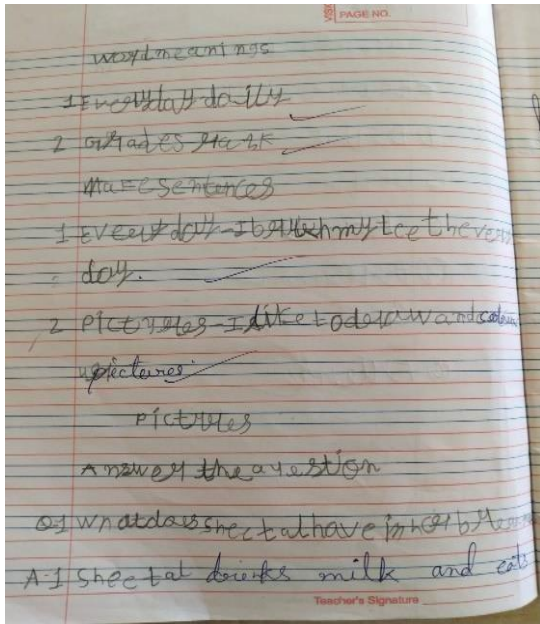 PAGE NO.
word meanings
1 Everyday daily
2 Grades rank
Make sentences
1 Everyday - I brush my teeth every
day.
2 Pictures - I like to draw and colour
pictures.
Pictures
Answer the question
Q1 What does Sheetal have in her
A-1 Sheetal drinks milk and eats
Teacher's Signature